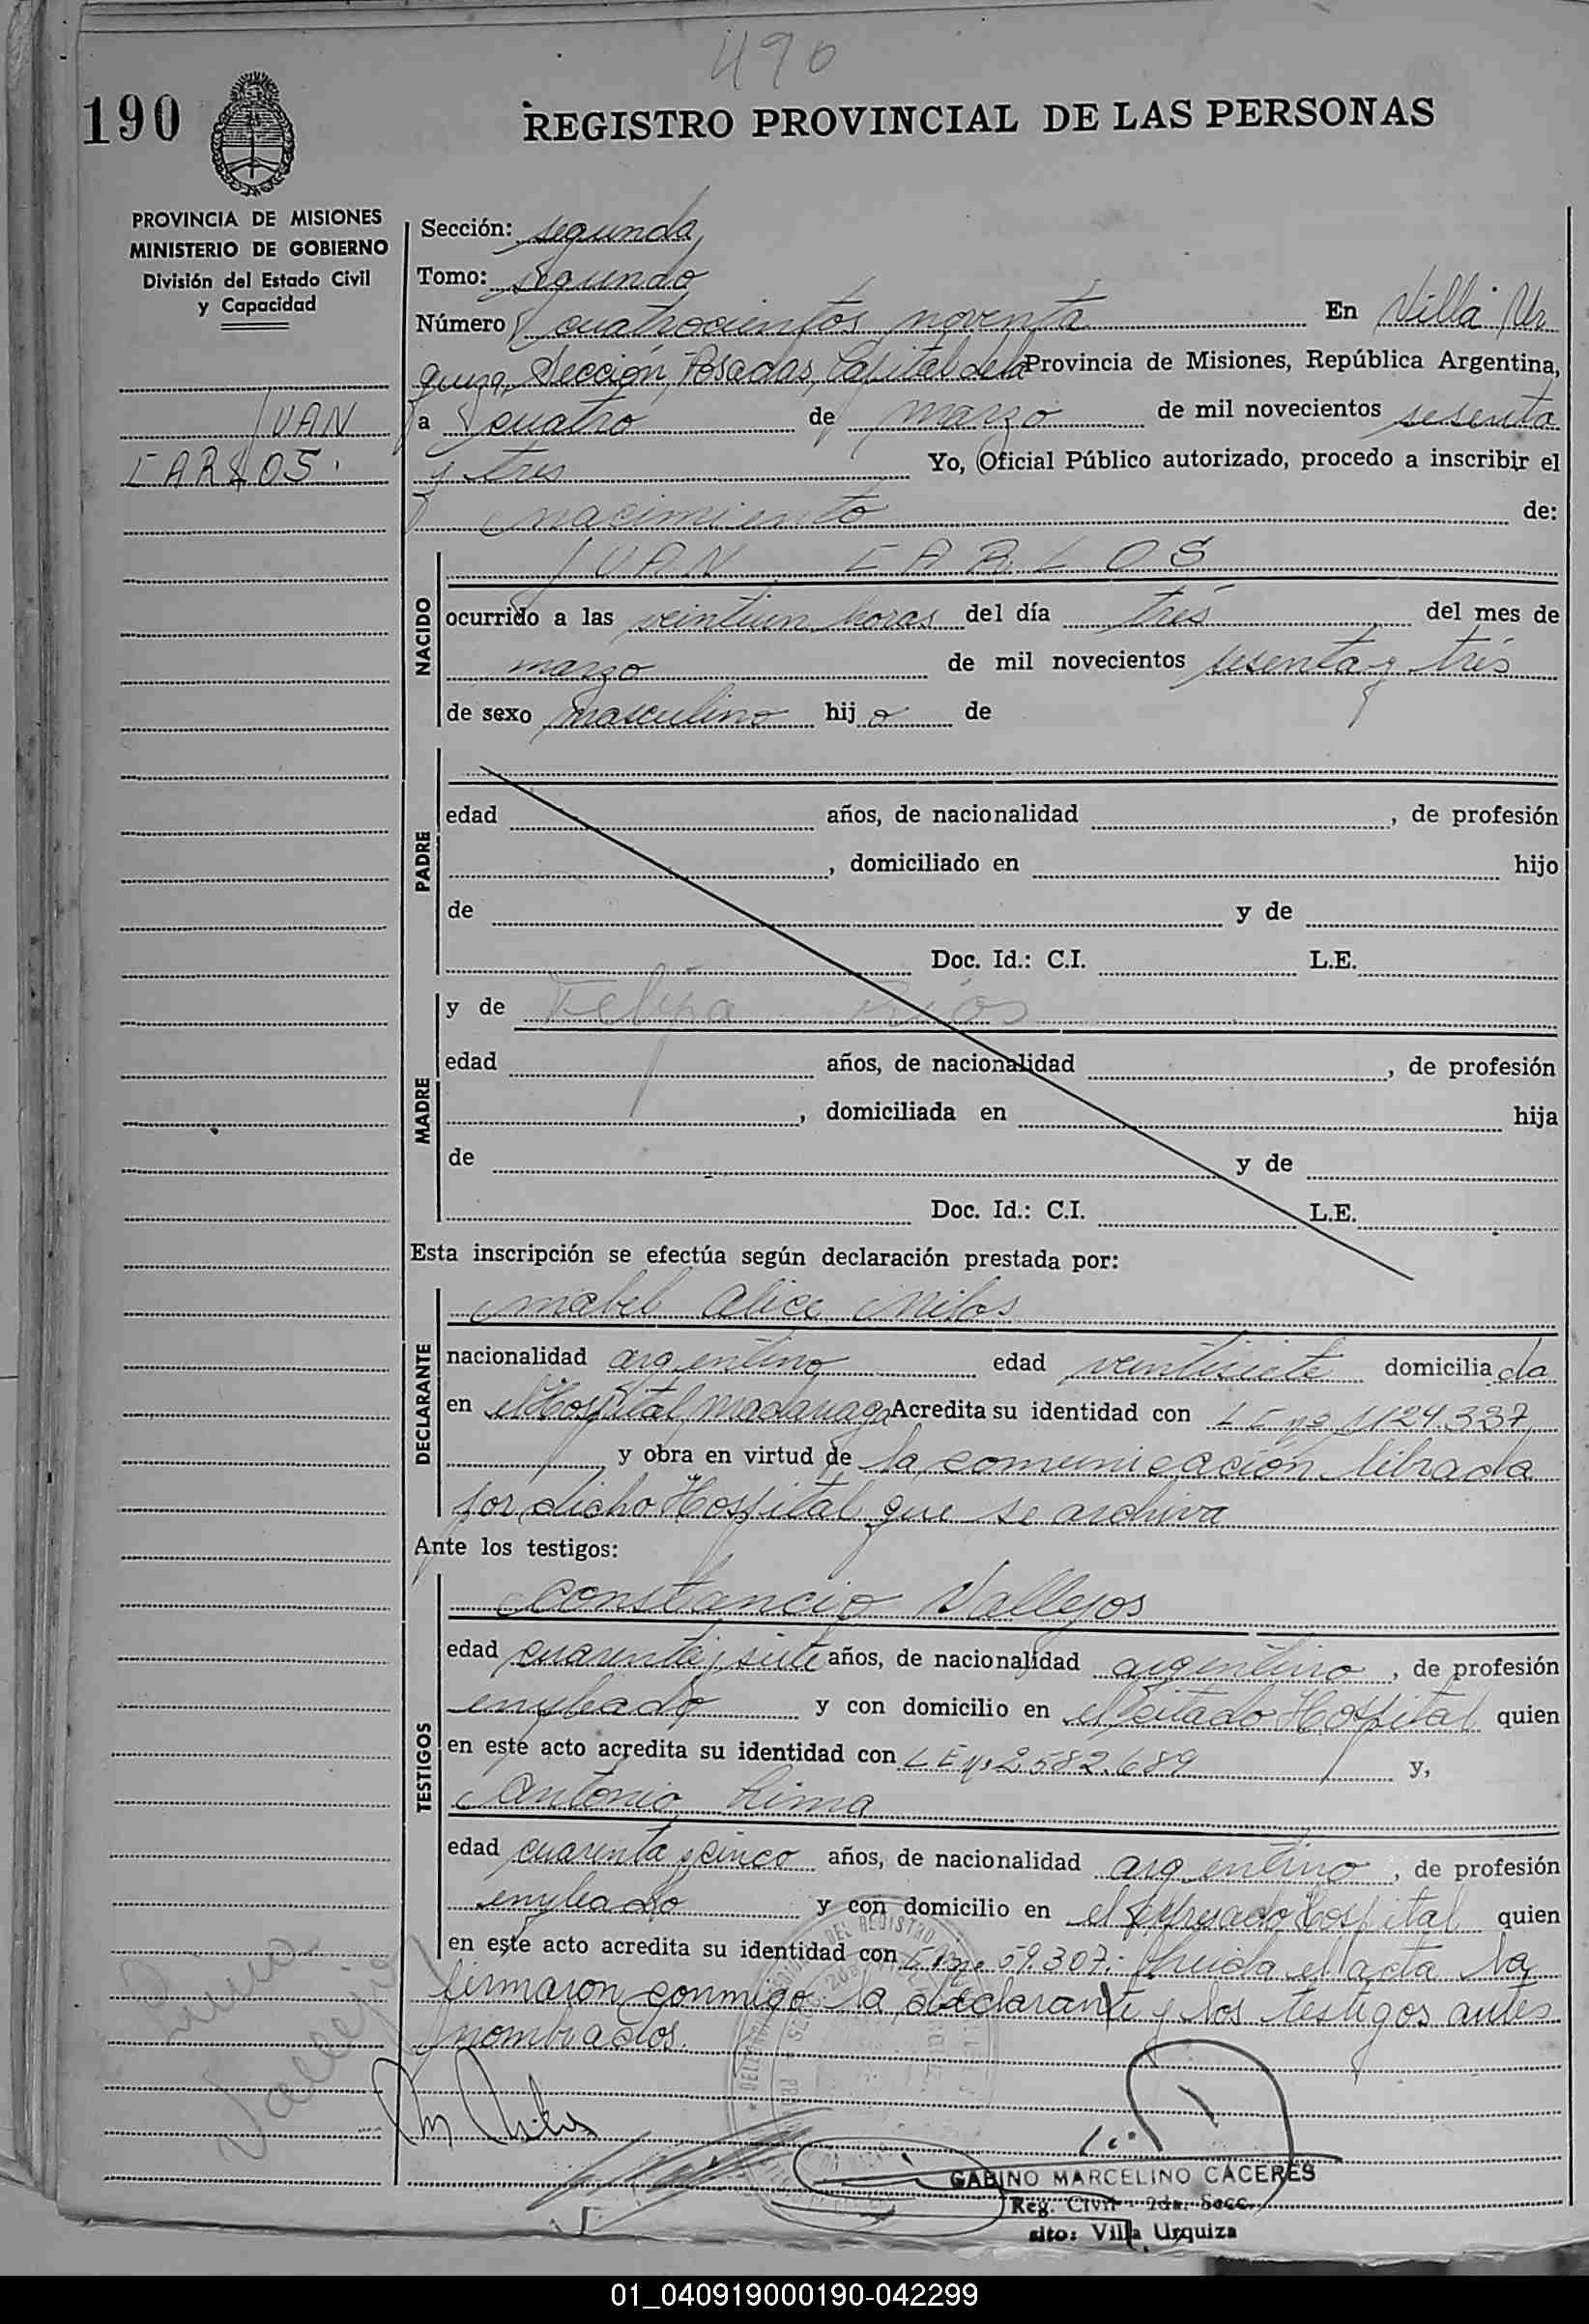 490
190
REGISTRO PROVINCIAL DE LAS PERSONAS
PROVINCIA DE MISIONES
MINISTERIO DE GOBIERNO
División del Estado Civil
y Capacidad
JUAN
CARLOS.
Sección: segunda
Tomo: segundo
Número cuatrocientos noventa En Villa Ur
quiza, Sección, Posadas, Capital de la Provincia de Misiones, República Argentina,
a cuatro de marzo de mil novecientos sesenta
y tres Yo, Oficial Público autorizado, procedo a inscribir el
nacimiento de:
NACIDO
JUAN CARLOS
ocurrido a las veintiun horas del día tres del mes de
marzo de mil novecientos sesenta y tres
de sexo masculino hijo de
PADRE
edad años, de nacionalidad , de profesión
, domiciliado en hijo
de y de
Doc. Id.: C.I. L.E.
MADRE
y de Felipa Ríos
edad años, de nacionalidad , de profesión
, domiciliada en hija
de y de
Doc. Id.: C.I. L.E.
Esta inscripción se efectúa según declaración prestada por:
DECLARANTE
Mabel Alice
nacionalidad argentina edad veintisiete domiciliada
en el Hospital Madariaga Acredita su identidad con 1129.337
y obra en virtud de la comunicación librada
por dicho Hospital que se archiva
Ante los testigos:
TESTIGOS
Constancio Vallejos
edad cuarenta y siete años, de nacionalidad argentino, de profesión
empleado y con domicilio en el citado Hospital quien
en este acto acredita su identidad con L E nº 2.582.689 y,
Antonio Lima
edad cuarenta y cinco años, de nacionalidad argentino, de profesión
empleado y con domicilio en el expresado Hospital quien
en este acto acredita su identidad con 59.307. Leida el acta la
firmaron conmigo la declarante y los testigos antes
nombrados.
Lima
Vallejo
GABINO MARCELINO CACERES
Reg. Civil 2da. Secc.
sito: Villa Urquiza
01_040919000190-042299